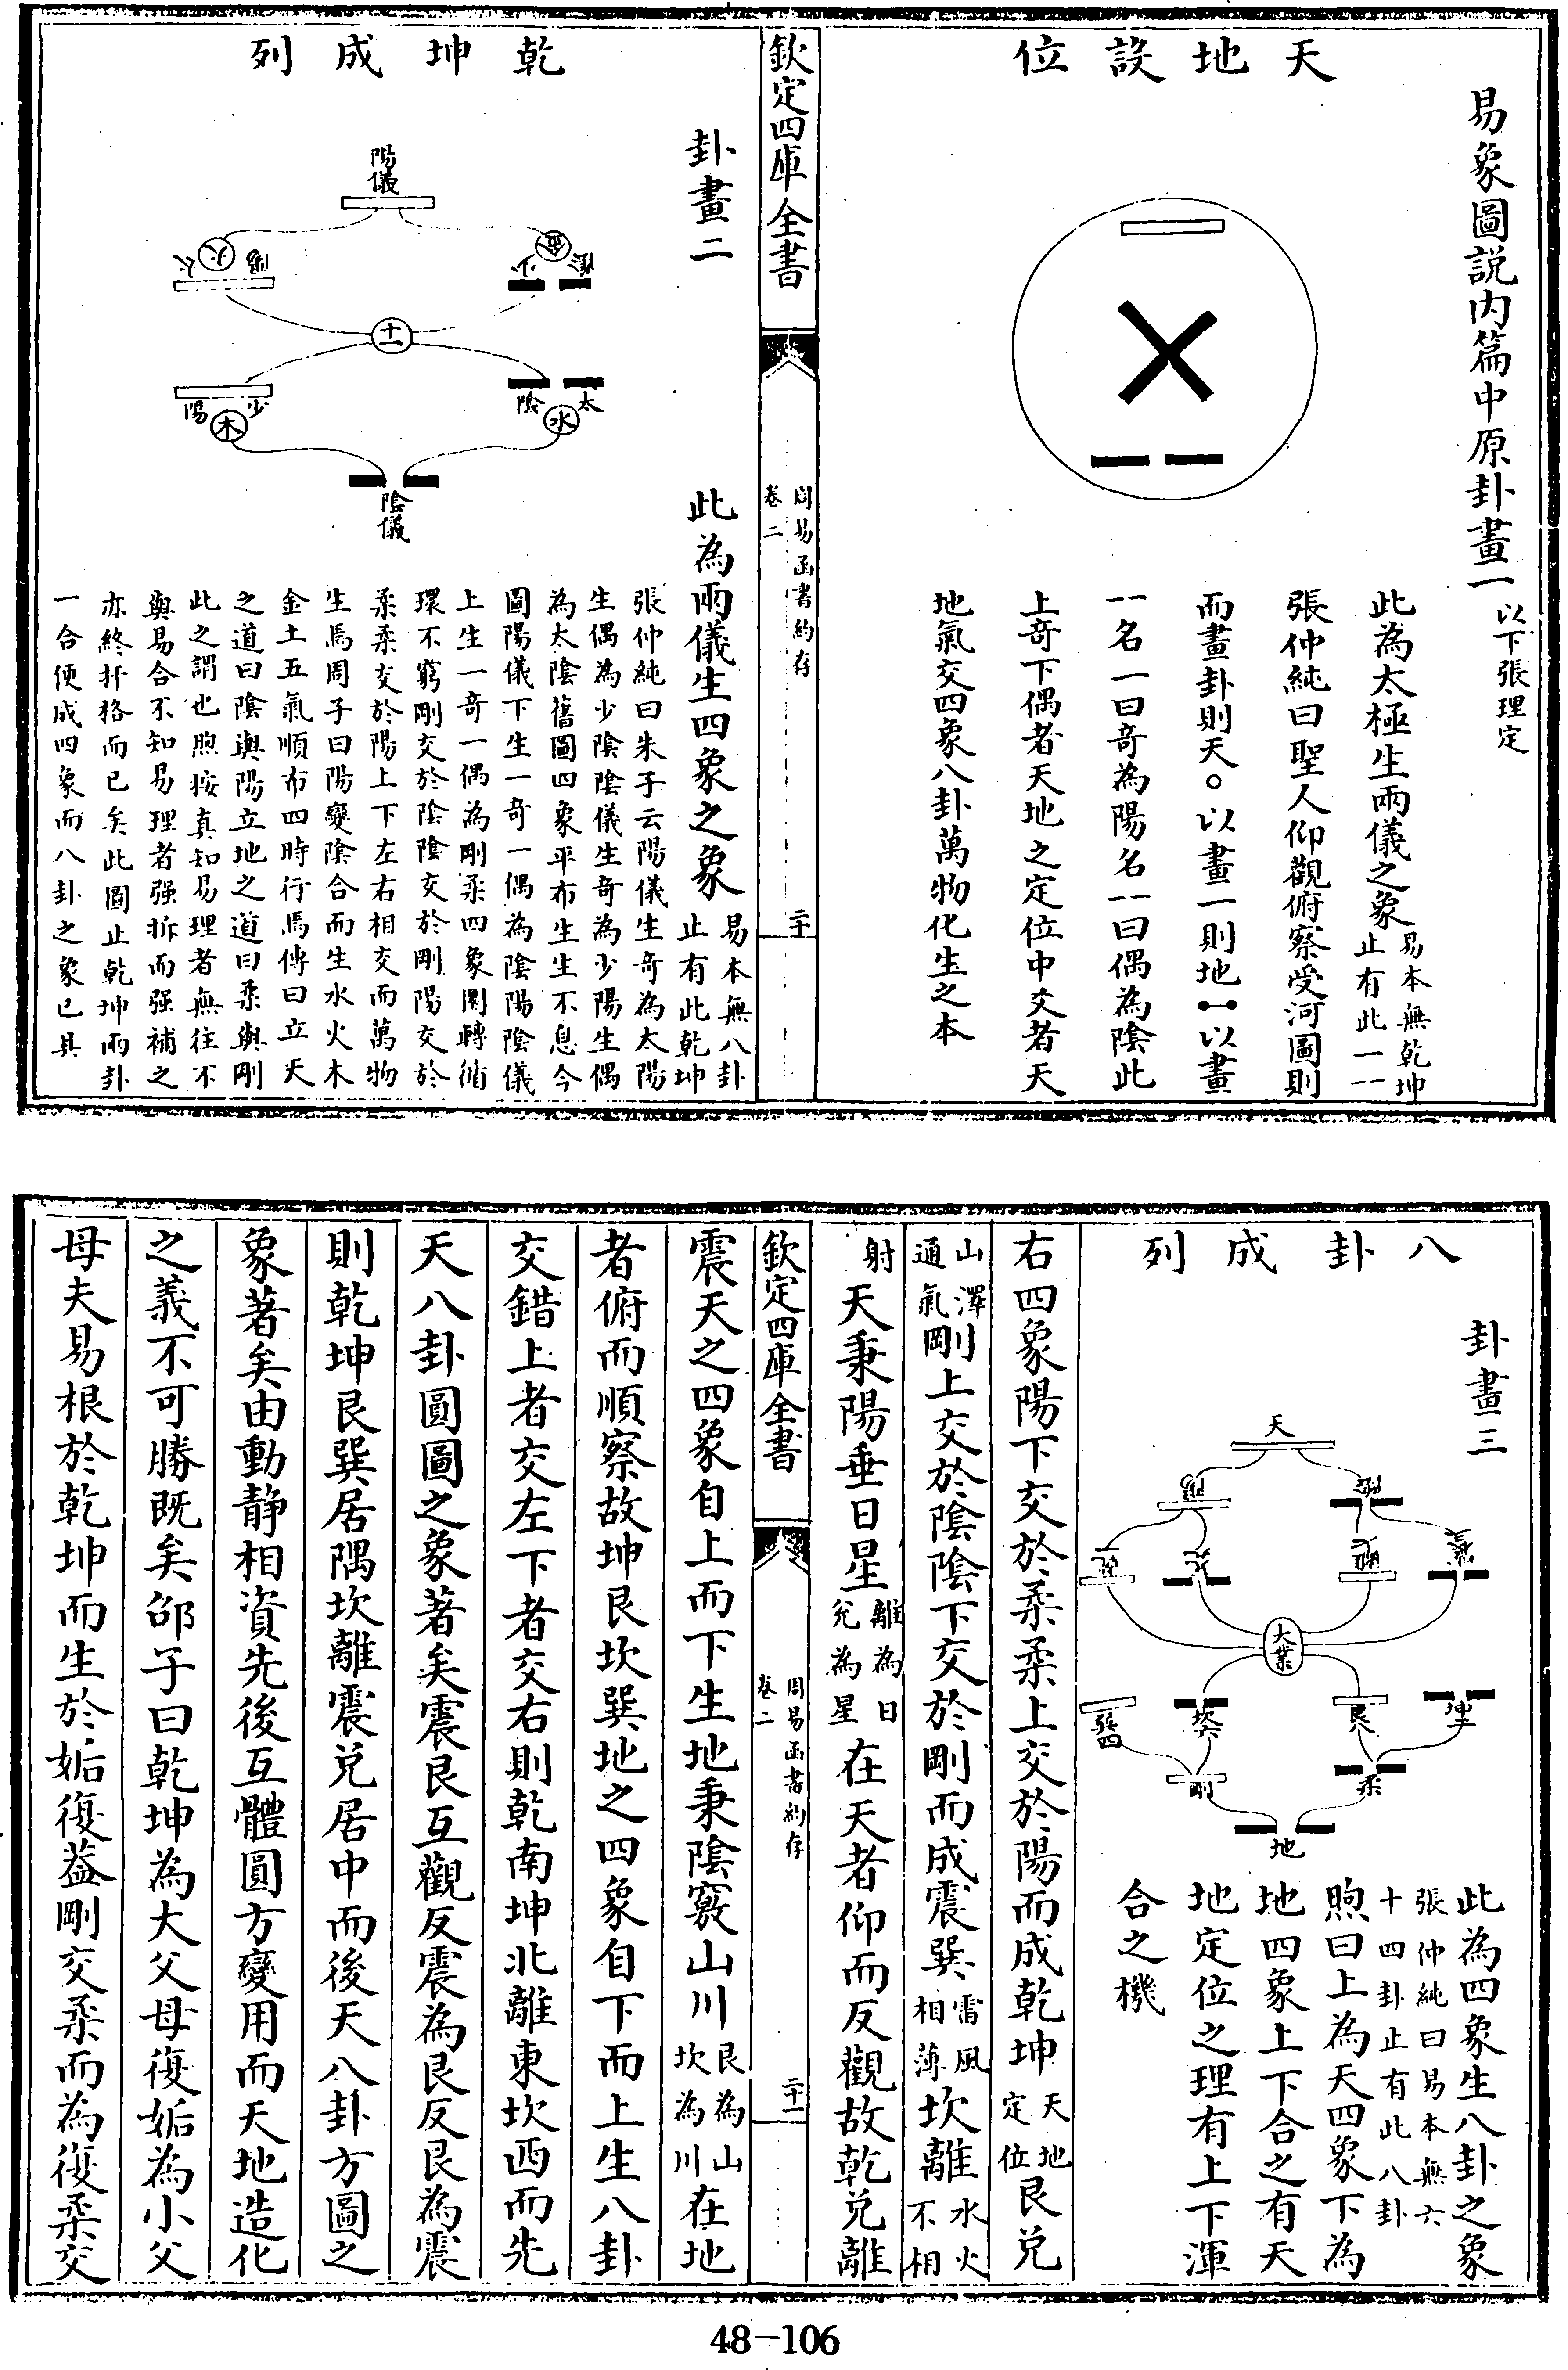 易象圖説内篇中原卦畫一以下張理定
天地設位
此為太極生兩儀之象易本無乾坤止有此一--
張仲純曰聖人仰觀俯察受河圖則
而畫卦則天○以畫一則地以畫
--名一曰奇為陽名--曰偶為陰此
上奇下偶者天地之定位中爻者天
地氣交四象八卦萬物化生之本
欽定四庫全書
周易函書約存
卷二
二十
卦畫二
乾坤成列
陽儀
金
陰少
火
陽太
十一
太陰
水
少陽
木
陰儀
此為兩儀生四象之象易本無八卦止有此乾坤
張仲純曰朱子云陽儀生奇為太陽
生偶為少陰陰儀生奇為少陽生偶
為太陰舊圖四象平布生生不息今
圖陽儀下生一奇一偶為陰陽陰儀
上生一奇一偶為剛柔四象圜轉循
環不窮剛交於陰陰交於剛陽交於
柔柔交於陽上下左右相交而萬物
生焉周子曰陽變陰合而生水火木
金土五氣順布四時行焉傳曰立天
之道曰陰與陽立地之道曰柔與剛
此之謂也煦按真知易理者無往不
與易合不知易理者强拆而强補之
亦終扞格而已矣此圖止乾坤兩卦
一合便成四象而八卦之象已具
卦畫三
八卦成列
天
陰
陽
離
大業
坤
艮
坎
柔
剛
地
此為四象生八卦之象
張仲純曰易本無六十四卦止有此八卦
煦曰上為天四象下為
地四象上下合之有天
地定位之理有上下渾
合之機
右四象陽下交於柔柔上交於陽而成乾坤天地定位艮兌
山澤通氣剛上交於陰陰下交於剛而成震巽雷風相薄坎離水火不相
射天秉陽垂日星離為日兌為星在天者仰而反觀故乾兌離
欽定四庫全書
周易函書約存
卷二
二十一
震天之四象自上而下生地秉陰竅山川艮為山坎為川在地
者俯而順察故坤艮坎巽地之四象自下而上生八卦
交錯上者交左下者交右則乾南坤北離東坎西而先
天八卦圓圖之象著矣震艮互觀反震為艮反艮為震
則乾坤艮巽居隅坎離震兌居中而後天八卦方圖之
象著矣由動静相資先後互體圓方變用而天地造化
之義不可勝既矣邵子曰乾坤為大父母復姤為小父
母夫易根於乾坤而生於姤復葢剛交柔而為復柔交
48-106